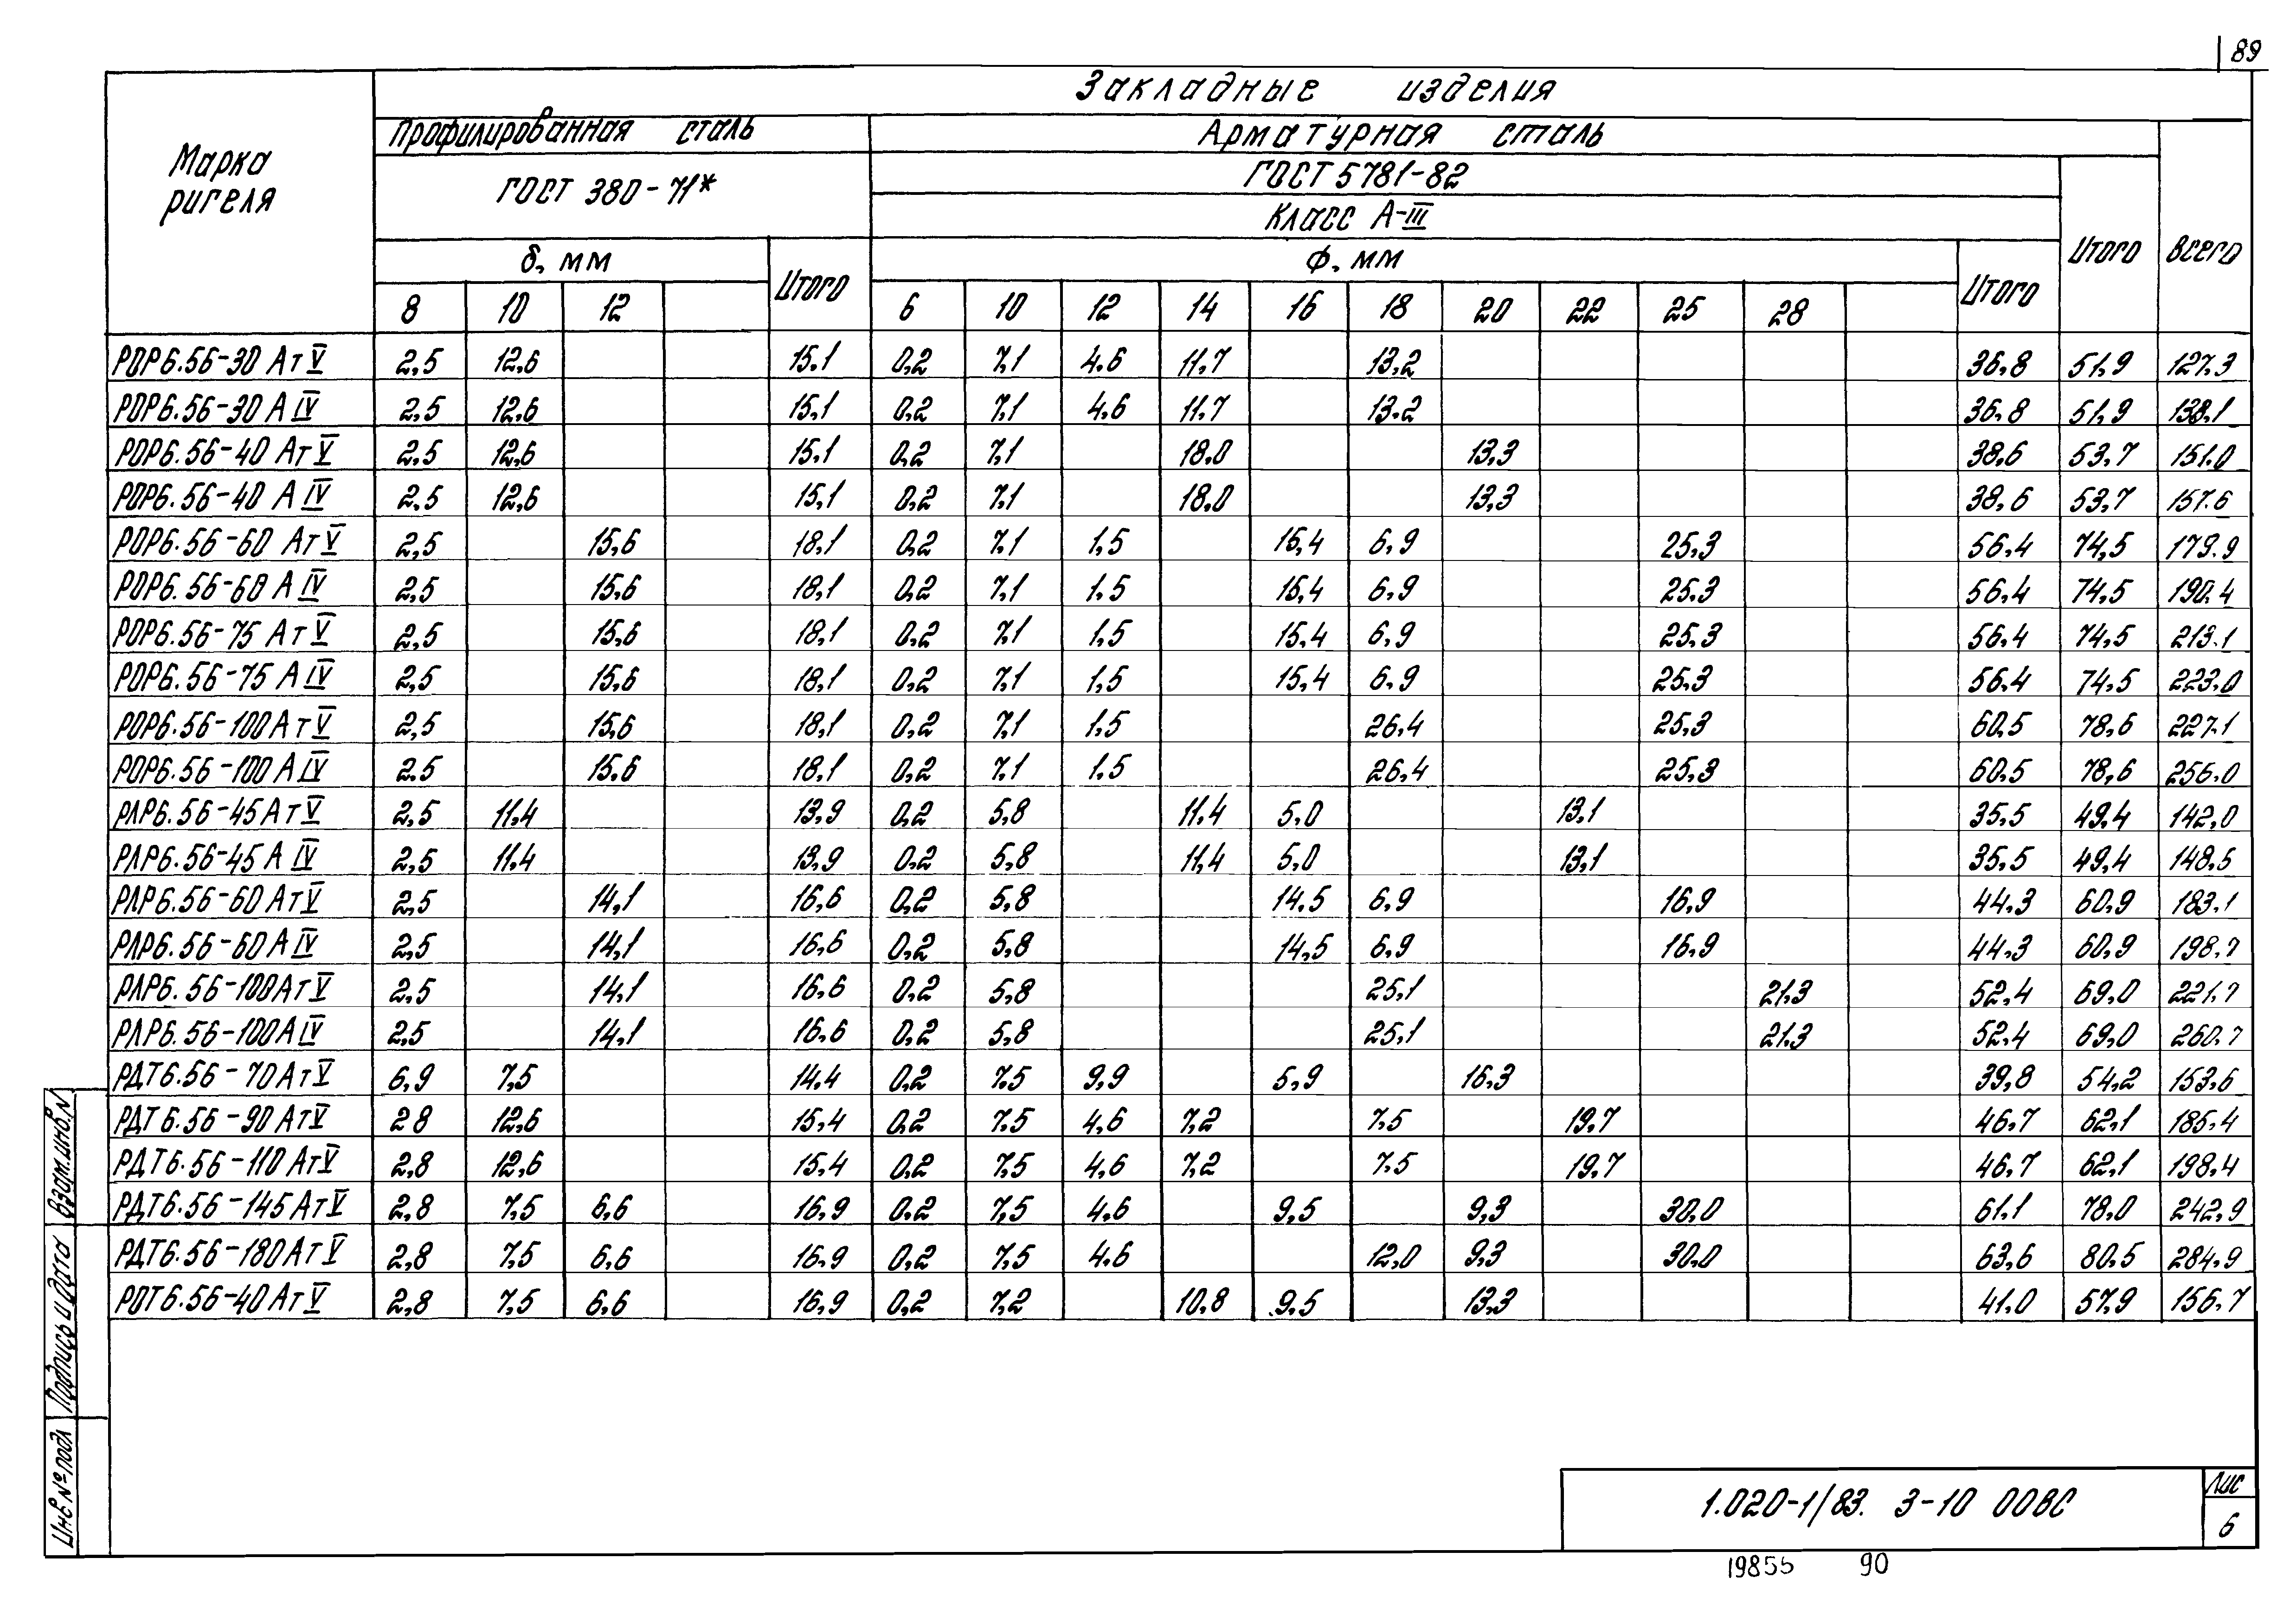 89
Закладные изделия
Марка ригеля
Профилированная сталь
Арматурная сталь
ГОСТ 380-71*
ГОСТ 5781-82
Класс А-III
Итого
Всего
δ, мм
Итого
Ф, мм
Итого
8 10 12 6 10 12 14 16 18 20 22 25 28
РОР6.56-30 АтV 2,5 12,6 15,1 0,2 7,1 4,6 11,7 13,2 36,8 51,9 127,3
РОР6.56-30 АIV 2,5 12,6 15,1 0,2 7,1 4,6 11,7 13,2 36,8 51,9 138,1
РОР6.56-40 АтV 2,5 12,6 15,1 0,2 7,1 18,0 13,3 38,6 53,7 151,0
РОР6.56-40 АIV 2,5 12,6 15,1 0,2 7,1 18,0 13,3 38,6 53,7 157,6
РОР6.56-60 АтV 2,5 15,6 18,1 0,2 7,1 1,5 15,4 6,9 25,3 56,4 74,5 179,9
РОР6.56-60 АIV 2,5 15,6 18,1 0,2 7,1 1,5 15,4 6,9 25,3 56,4 74,5 190,4
РОР6.56-75 АтV 2,5 15,6 18,1 0,2 7,1 1,5 15,4 6,9 25,3 56,4 74,5 213,1
РОР6.56-75 АIV 2,5 15,6 18,1 0,2 7,1 1,5 15,4 6,9 25,3 56,4 74,5 223,0
РОР6.56-100 АтV 2,5 15,6 18,1 0,2 7,1 1,5 26,4 25,3 60,5 78,6 227,1
РОР6.56-100 АIV 2,5 15,6 18,1 0,2 7,1 1,5 26,4 25,3 60,5 78,6 256,0
РЛР6.56-45 АтV 2,5 11,4 13,9 0,2 5,8 11,4 5,0 13,1 35,5 49,4 142,0
РЛР6.56-45 АIV 2,5 11,4 13,9 0,2 5,8 11,4 5,0 13,1 35,5 49,4 148,5
РЛР6.56-60 АтV 2,5 14,1 16,6 0,2 5,8 14,5 6,9 16,9 44,3 60,9 183,1
РЛР6.56-60 АIV 2,5 14,1 16,6 0,2 5,8 14,5 6,9 16,9 44,3 60,9 198,7
РЛР6.56-100 АтV 2,5 14,1 16,6 0,2 5,8 25,1 21,3 52,4 69,0 221,7
РЛР6.56-100 АIV 2,5 14,1 16,6 0,2 5,8 25,1 21,3 52,4 69,0 260,7
РДТ6.56-70 АтV 6,9 7,5 14,4 0,2 7,5 9,9 5,9 16,3 39,8 54,2 153,6
РДТ6.56-90 АтV 2,8 12,6 15,4 0,2 7,5 4,6 7,2 7,5 19,7 46,7 62,1 185,4
РДТ6.56-110 АтV 2,8 12,6 15,4 0,2 7,5 4,6 7,2 7,5 19,7 46,7 62,1 198,4
РДТ6.56-145 АтV 2,8 7,5 6,6 16,9 0,2 7,5 4,6 9,5 9,3 30,0 61,1 78,0 242,9
РДТ6.56-180 АтV 2,8 7,5 6,6 16,9 0,2 7,5 4,6 12,0 9,3 30,0 63,6 80,5 284,9
РОТ6.56-40 АтV 2,8 7,5 6,6 16,9 0,2 7,2 10,8 9,5 13,3 41,0 57,9 156,7
Взам.инв.N
Подпись и дата
Инв № подл
1.020-1/83. 3-10 00ВС
Лис
6
19855 90